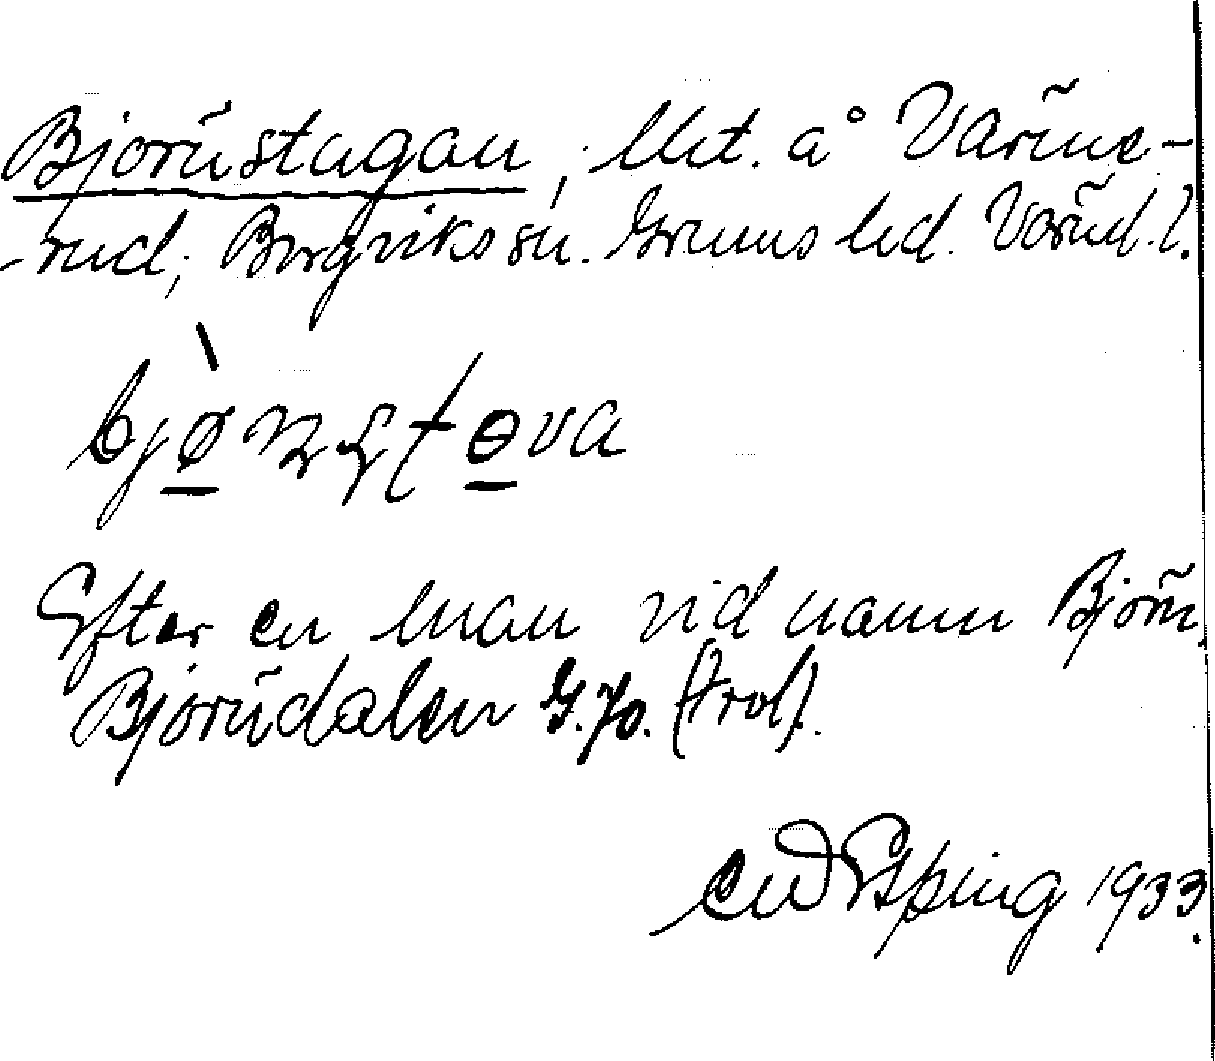 Björnstugan, Mt. å Värme-
-rud; Borgviks sn. Grums hd. Värml. l.
bjøṇʂtɵva
Efter en man vid namn Björn.
Björndalen G. 70. (trol).
CW Esping 1933.